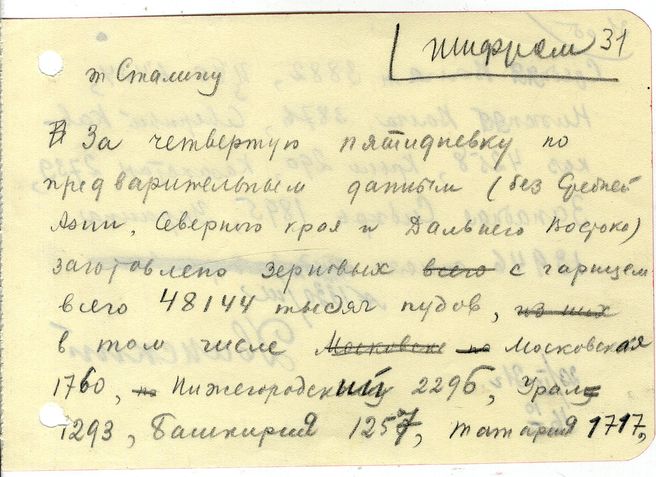 шифром 31
т Сталину
За четвертую пятидневку по
предварительным данным (без Средней
Азии, Северного края и Дальнего Востока)
заготовлено зерновых всего с гарнцем
всего 48144 тысяч пудов, из них
в том числе Московске по Московская
1760, по Нижегородский 2296, Урал
1293, Башкирия 1257, Татария 1717,